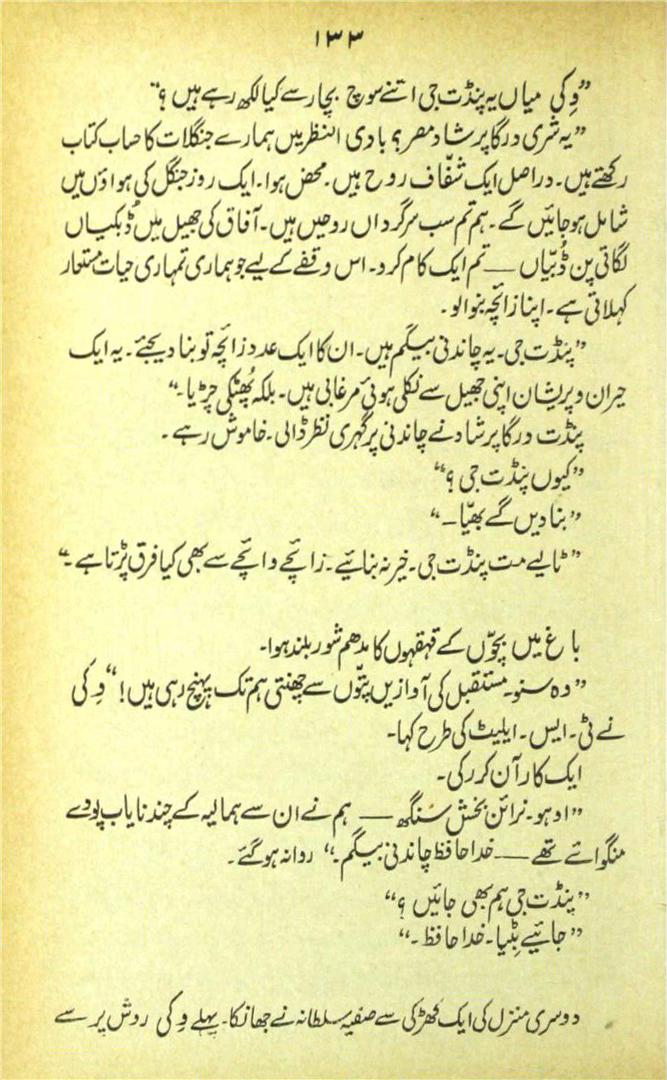 ۱۳۳
”وِکی میاں یہ پنڈت جی اتنے سوچ بچار سے کیا لکھ رہے ہیں ؟“
”یہ شری درگا پرشاد مصر؟ بادی النظر میں ہمارے جنگلات کا حساب کتاب
رکھتے ہیں۔ دراصل ایک شفّاف روح ہیں۔ محض ہوا۔ ایک روز جنگل کی ہواؤں میں
شامل ہو جائیں گے۔ ہم تم سب سرگرداں روحیں ہیں۔ آفاق کی جھیل میں ڈبکیاں
لگاتی پن ڈُبیّاں — تم ایک کام کرو۔ اس وقفے کے لیے جو ہماری تمہاری حیات مستعار
کہلاتی ہے۔ اپنا زائچہ بنوا لو۔
”پنڈت جی۔ یہ چاندنی بیگم ہیں۔ ان کا ایک عدد زائچہ تو بنا دیجئے۔ یہ ایک
حیران و پریشان اپنی جھیل سے نکلی ہوئی مرغابی ہیں۔ بلکہ پُھنکی چڑیا۔“
پنڈت درگا پرشاد نے چاندنی پر گہری نظر ڈالی۔ خاموش رہے۔
”کیوں پنڈت جی ؟“
”بنا دیں گے بھیّا۔“
”ٹالیے مت پنڈت جی۔ خیر نہ بنائیے۔ زائچے وائچے سے بھی کیا فرق پڑتا ہے۔“
باغ میں بچوّں کے قہقہوں کا مدھم شور بلند ہوا۔
”وہ سنو۔ مستقبل کی آوازیں پتّوں سے چھنتی ہم تک پہنچ رہی ہیں!“ وِکی
نے ٹی۔ ایس۔ ایلیٹ کی طرح کہا۔
ایک کار آن کر رکی۔
”اوہو۔ نرائن بخش سنگھ — ہم نے ان سے ہمالیہ کے چند نایاب پودے
منگوائے تھے — خدا حافظ چاندنی بیگم۔“ روانہ ہو گئے۔
”پنڈت جی ہم بھی جائیں ؟“
”جائیے بٹیا۔ خدا حافظ۔“
دوسری منزل کی ایک کھڑکی سے صفیہ سلطانہ نے جھانکا۔ پہلے وِکی روش پر سے